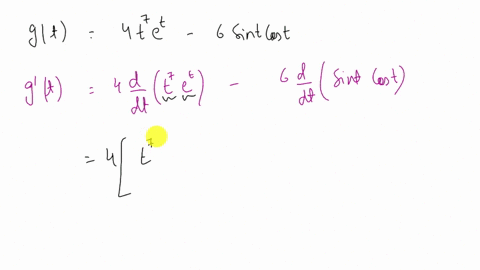 g(t) = 4t⁷eᵗ - 6 Sint Cost
g'(t) = 4 d/dt (t⁷ eᵗ) - 6 d/dt (Sint Cost)
= 4 [ t⁷